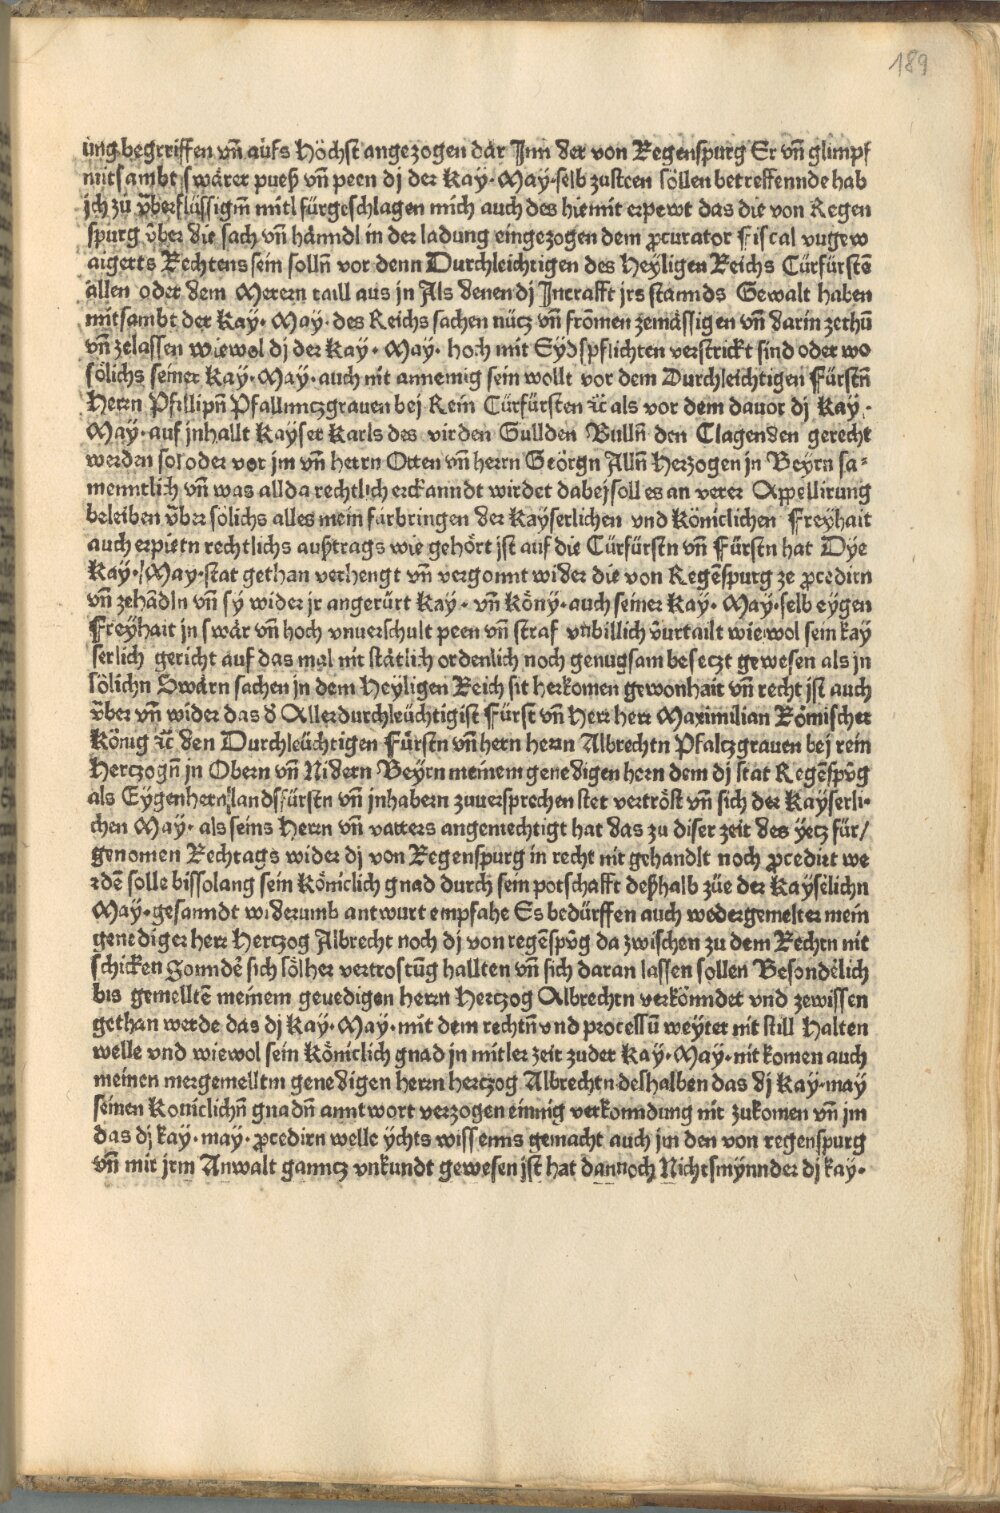 189
ung begrriffen vn̄ aufs Höchst angezogen dar Jnn der von Regenspurg Er vn̄ glimpf
mitsambt swärer pueß vn̄ peen dj der Kaÿ· May·selb zusteen söllen betreffennde hab
jch zu v̈berflüssigm̄ mitl fürgeschlagen mich auch des hiemit erpewt das die von Regen
spurg v̈ber die sach vn̄ hänndl in der ladung eingezogen dem ꝓcurator fiscal vugew
aigerts Rechtens sein solln̄ vor denn Durchleichtigen des Heÿligen Reichs Cürfürstē
allen oder dem Merern taill aus jn Als denen dj Jncrafft jrs stannds Gewalt haben
mitsambt der Kaÿ· May· des Reichs sachen nücz vn̄ frōmen zemässigen vn̄ darin zethū
vn̄ zelassen wiewol dj der Kaÿ· May· hoch mit Eÿdspflichten verstrickt sind oder wo
sölichs seiner Kaÿ·May·auch nit annemig sein wollt vor dem Durchleichtigen Fürstn̄
Herrn Pfillipn̄ Pfallnntzgrauen bej Rein Cürfürsten ꝛc̄ als vor dem dauor dj Kaÿ·
May·auf jnhallt Kayser Karls des virden Gullden Bulln̄ den Clagenden gerecht
werden sol oder vor jm vn̄ herrn Otten vn̄ herrn Geörgn Alln̄ Herzogen jn Beÿrn sa⸗
menntlich vn̄ was allda rechtlich erckanndt wirdet dabej soll es an verer Appellirung
beleiben v̈ber sölichs alles mein fürbringen der Kaÿserlichen vnd Köniclichen Freÿhait
auch erpietn rechtlichs außtrags wie gehört jst auf die Cürfürstn vn̄ Fürstn hat Dÿe
Kaÿ·/May·stat gethan verhengt vn̄ vergonnt wider die von Regēspurg ze ꝓcedirn
vn̄ zehādln vn̄ sÿ wider jr angerürt Kaÿ· vn̄ Köny·auch seiner Kaÿ· May·selb eÿgen
Freÿhait jn swär vn̄ hoch vnuerschult peen vn̄ straf vnbillich v̈urtailt wiewol sein kaÿ
serlich gericht auf das mal nit stätlich ordenlich noch genugsam besetzt gewesen als jn
sölichn Swärn sachen jn dem Heÿligen Reich sit herkomen gewonhait vn̄ recht jst auch
v̈ber vn̄ wider das d Allerdurchleüchtigist Fürst vn̄ Herr herr Maximilian Römischer
König ꝛc̄ den Durchleüchtigen Fürstn vn̄ hern herrn Albrechtn Pfaltzgrauen bej rein
Hertzogn̄ jn Obern vn̄ Nidern Beÿrn meinem genedigen hern dem dj stat Regēspv̄g
als Eÿgenhern/landsfürstn vn̄ jnhabern zuuersprechen stet vertröst vn̄ sich der Kaÿserli⸗
chen May· als seins Herrn vn̄ vatters angemechtigt hat das zu diser zeit des ÿetz für/
genomen Rechtags wider dj von Regenspurg in recht nit gehandlt noch ꝓcedirt we
rdē solle bissolang sein Köniclich gnad durch sein potschafft deßhalb züe der Kaÿsēlichn
May·gesanndt widerumb antwurt empfahe Es bedürffen auch wedergemelter mein
genediger herr Hertzog Albrecht noch dj von regēspv̄g da zwischen zu dem Rechtn nit
schicken Sonndē sich sölher vertrostūg hallten vn̄ sich daran lassen sollen Besondēlich
bis gemelltē meinem geuedigen herrn Hertzog Albrechtn verkönndet vnd zewissen
gethan werde das dj Kaÿ·May·mit dem rechtn̄ vnd processū weÿter nit still Halten
welle vnd wiewol sein Königlich gnad jn mitler zeit zuder Kaÿ·May·nit komen auch
meinen mergemelltm genedigen herrn hertzog Albrechtn deshalben das dj Kaÿ·may
seinen Kouiclichn̄ gnadn̄ annt wort verzogen einnig verkonndung nit zukomen vn̄ jm
das dj kaÿ·may· ꝓcedirn welle ÿchts wissenns gemacht auch jm den von regenspurg
vn̄ mit jrm Anwalt ganntz vnkundt gewesen jst hat dannoch Nichtsmÿnnder dj kaÿ·